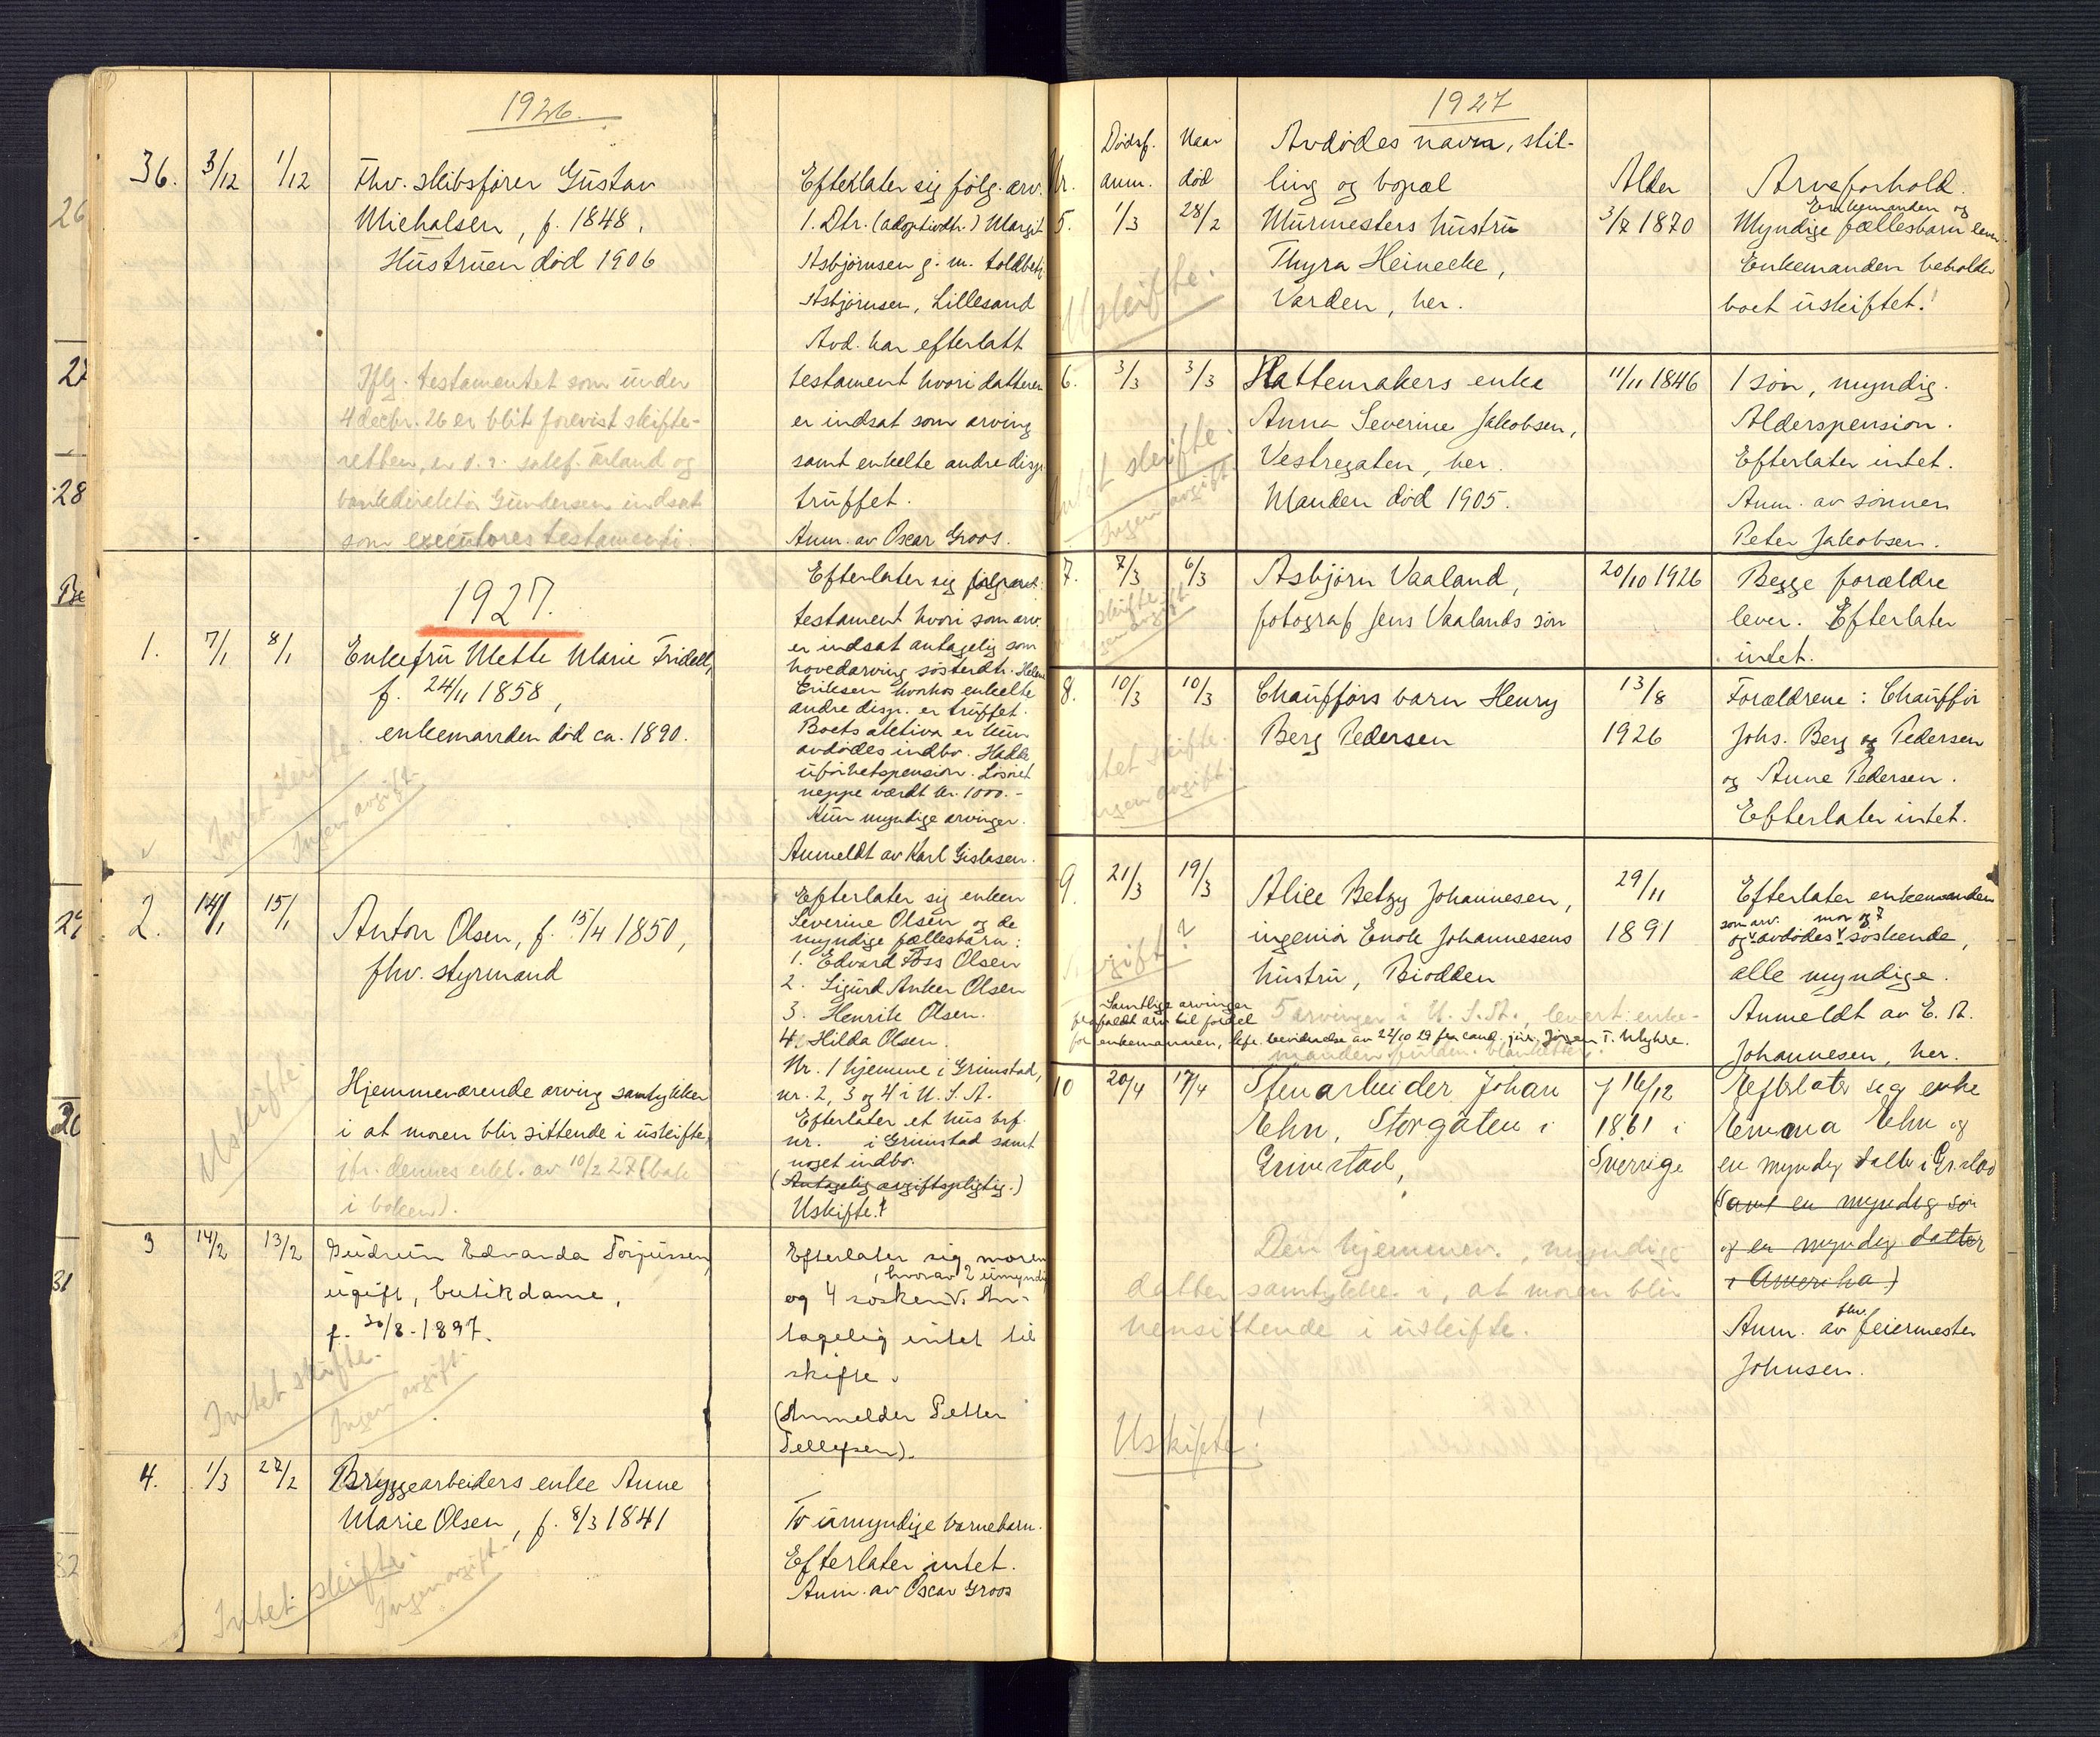 1926.
36. 3/12 1/12
Fhv. skibsfører Gustav
Michalsen, f. 1848,
Hustruen død 1906
Iflg. testamentet som under
4 decbr. 26 er blit forevist skifte-
retten, er o. r. sakf. Ørland og
bankdirektør Gundersen indsat
som executores testamenti.
Efterlater sig følg. arv.
1. Dtr. (adoptivdtr.) Margit
Asbjørnsen g. m. toldbetj.
Asbjørnsen, Lillesand
Avd. har efterlatt
testament hvori datteren
er indsat som arving
samt enkelte andre disp.
truffet.
Anm. av Oscar Groos.
1927.
1. 7/1 8/1
Enkefru Mette Marie Fridell,
f. 24/11 1858,
enkemanden død ca. 1890.
Intet skifte
Ingen avgift.
Efterlater sig
testament hvori som arv.
er indsat antagelig som
hovedarving søsterdtr. Helene
Eriksen hvorhos enkelte
andre disp. er truffet.
Boets aktiva er kun
avdødes indbo. Hadde
uførhetspension. Løsøret
neppe værdt kr. 1000.-
Kun myndige arvinger.
Anmeldt av Karl Gislasen.
2. 14/1 15/1
Anton Olsen, f. 15/4 1850,
fhv. styrmand
Hjemmeværende arving samtykker
i at moren blir sittende i uskifte,
jfr. dennes erkl. av 10/2 27 (bak
i boken).
Uskifte.
Efterlater sig enken
Severine Olsen og de
myndige fællesbarn:
1. Edvard Foss Olsen
2. Sigurd Anker Olsen
3. Henrik Olsen.
4. Hilda Olsen.
Nr. 1 hjemme i Grimstad,
nr. 2, 3 og 4 i U. S. A.
Efterlater et hus brf.
nr. i Grimstad samt
noget indbo.
(Antagelig avgiftspligtig.)
Uskifte!
3 14/2 13/2
Gudrun Edvarda Torjussen,
ugift, butikdame,
f. 30/8-1897.
Intet skifte.
Ingen avgift.
Efterlater sig moren
, hvorav 2 umyndig
og 4 søskend. An-
tagelig intet til
skifte.
(Anmelder Petter
Tellefsen).
4. 1/3 27/2
Bryggearbeiders enke Anne
Marie Olsen, f. 8/3 1841
Intet skifte.
Ingen avgift.
To umyndige barnebarn.
Efterlater intet.
Anm. av Oscar Groos
1927
Nr. Dødsf. anm. Naar død
Avdødes navn, stil-
ling og bopæl
Alder
Arveforhold.
5. 1/3 28/2
Murmesters hustru
Thyra Heinecke,
Varden, her.
3/7 1870
Enkemanden og
Myndige fællesbarn lever.
Enkemanden beholder
boet uskiftet!
Uskifte.
6. 3/3 3/3
Hattemakers enke
Anna Severine Jakobsen,
Vestregaten, her.
Manden død 1905.
11/11 1846
1 søn, myndig.
Alderspension.
Efterlater intet.
Anm. av sønnen
Peter Jakobsen.
Intet skifte.
Ingen avgift
7. 7/3 6/3
Asbjørn Vaaland,
fotograf Jens Vaalands søn
20/10 1926
Begge forældre
lever. Efterlater
intet.
skifte
Ingen avgift
8. 10/3 10/3
Chaufførs barn Henry
Berg Pedersen
13/8
1926
Forældrene: Chauffør
Johs. Berg og Pedersen
og Anne Pedersen.
Efterlater intet.
Intet skifte.
Ingen avgift.
9. 21/3 19/3
Alice Betzy Johannesen,
ingeniør Enok Johannesens
hustru, Biodden
29/11
1891
Efterlater enkemanden
som arv. mor og 7
og avdødes søskende,
alle myndige.
Anmeldt av E. A.
Johannesen, her.
avgift ?
5 arvinger i U. S. A., levert enke-
manden blanketter.
Samtlige arvinger
frafaldt arv til fordel
for enkemannen, bevidnelse av 24/10 29 fra cand. jur. Jørgen T. Myhre.
10 20/4 17/4
Stenarbeider Johan
Ehn, Storgaten i
Grimstad,
f 16/12
1861 i
Sverrige
Efterlater sig enke
Emma Ehn og
en myndig datter i Gr.stad
(samt en myndig søn
og en myndig datter
i Amerika)
fhv.
Anm. av feiermester
Johnsen.
Den hjemmev., myndige
datter samtykke i, at moren blir
hensittende i uskifte.
Uskifte!
26
27
28
29
30
31
32